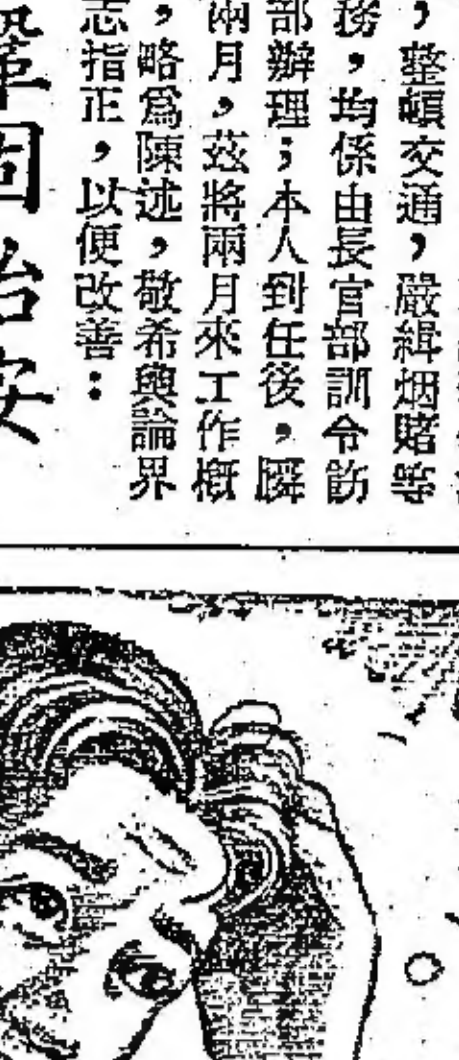 ，整頓交通，嚴緝烟賭等
務，均係由長官部訓令飭
部辦理；本人到任後，瞬
兩月，茲將兩月來工作概
，略爲陳述，敬希輿論界
志指正，以便改善：
鞏固治安